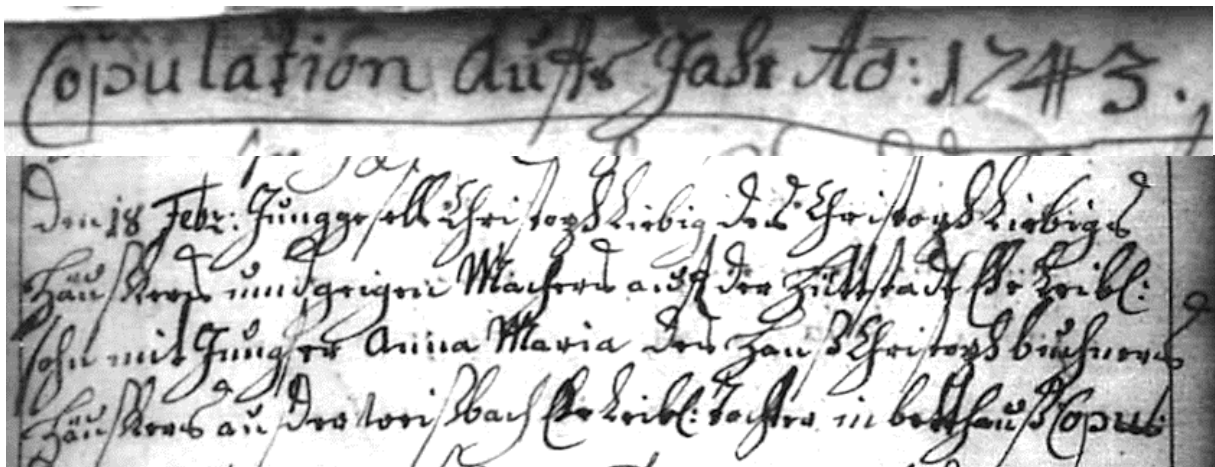 Copulation Aufs Jahr Aõ: 1743.
den 18 Febr: Junggesell Christoph Liebig des Christoph Liebiges
Häußlers und geigen Machers auß der Hüttstadt Ehe Leibl:
sohn mit Jungfer Anna Maria des Hanß Christoph büchners
Häußlers auß der weißbach Ehe Leibl: tochter in betthauß Copul: